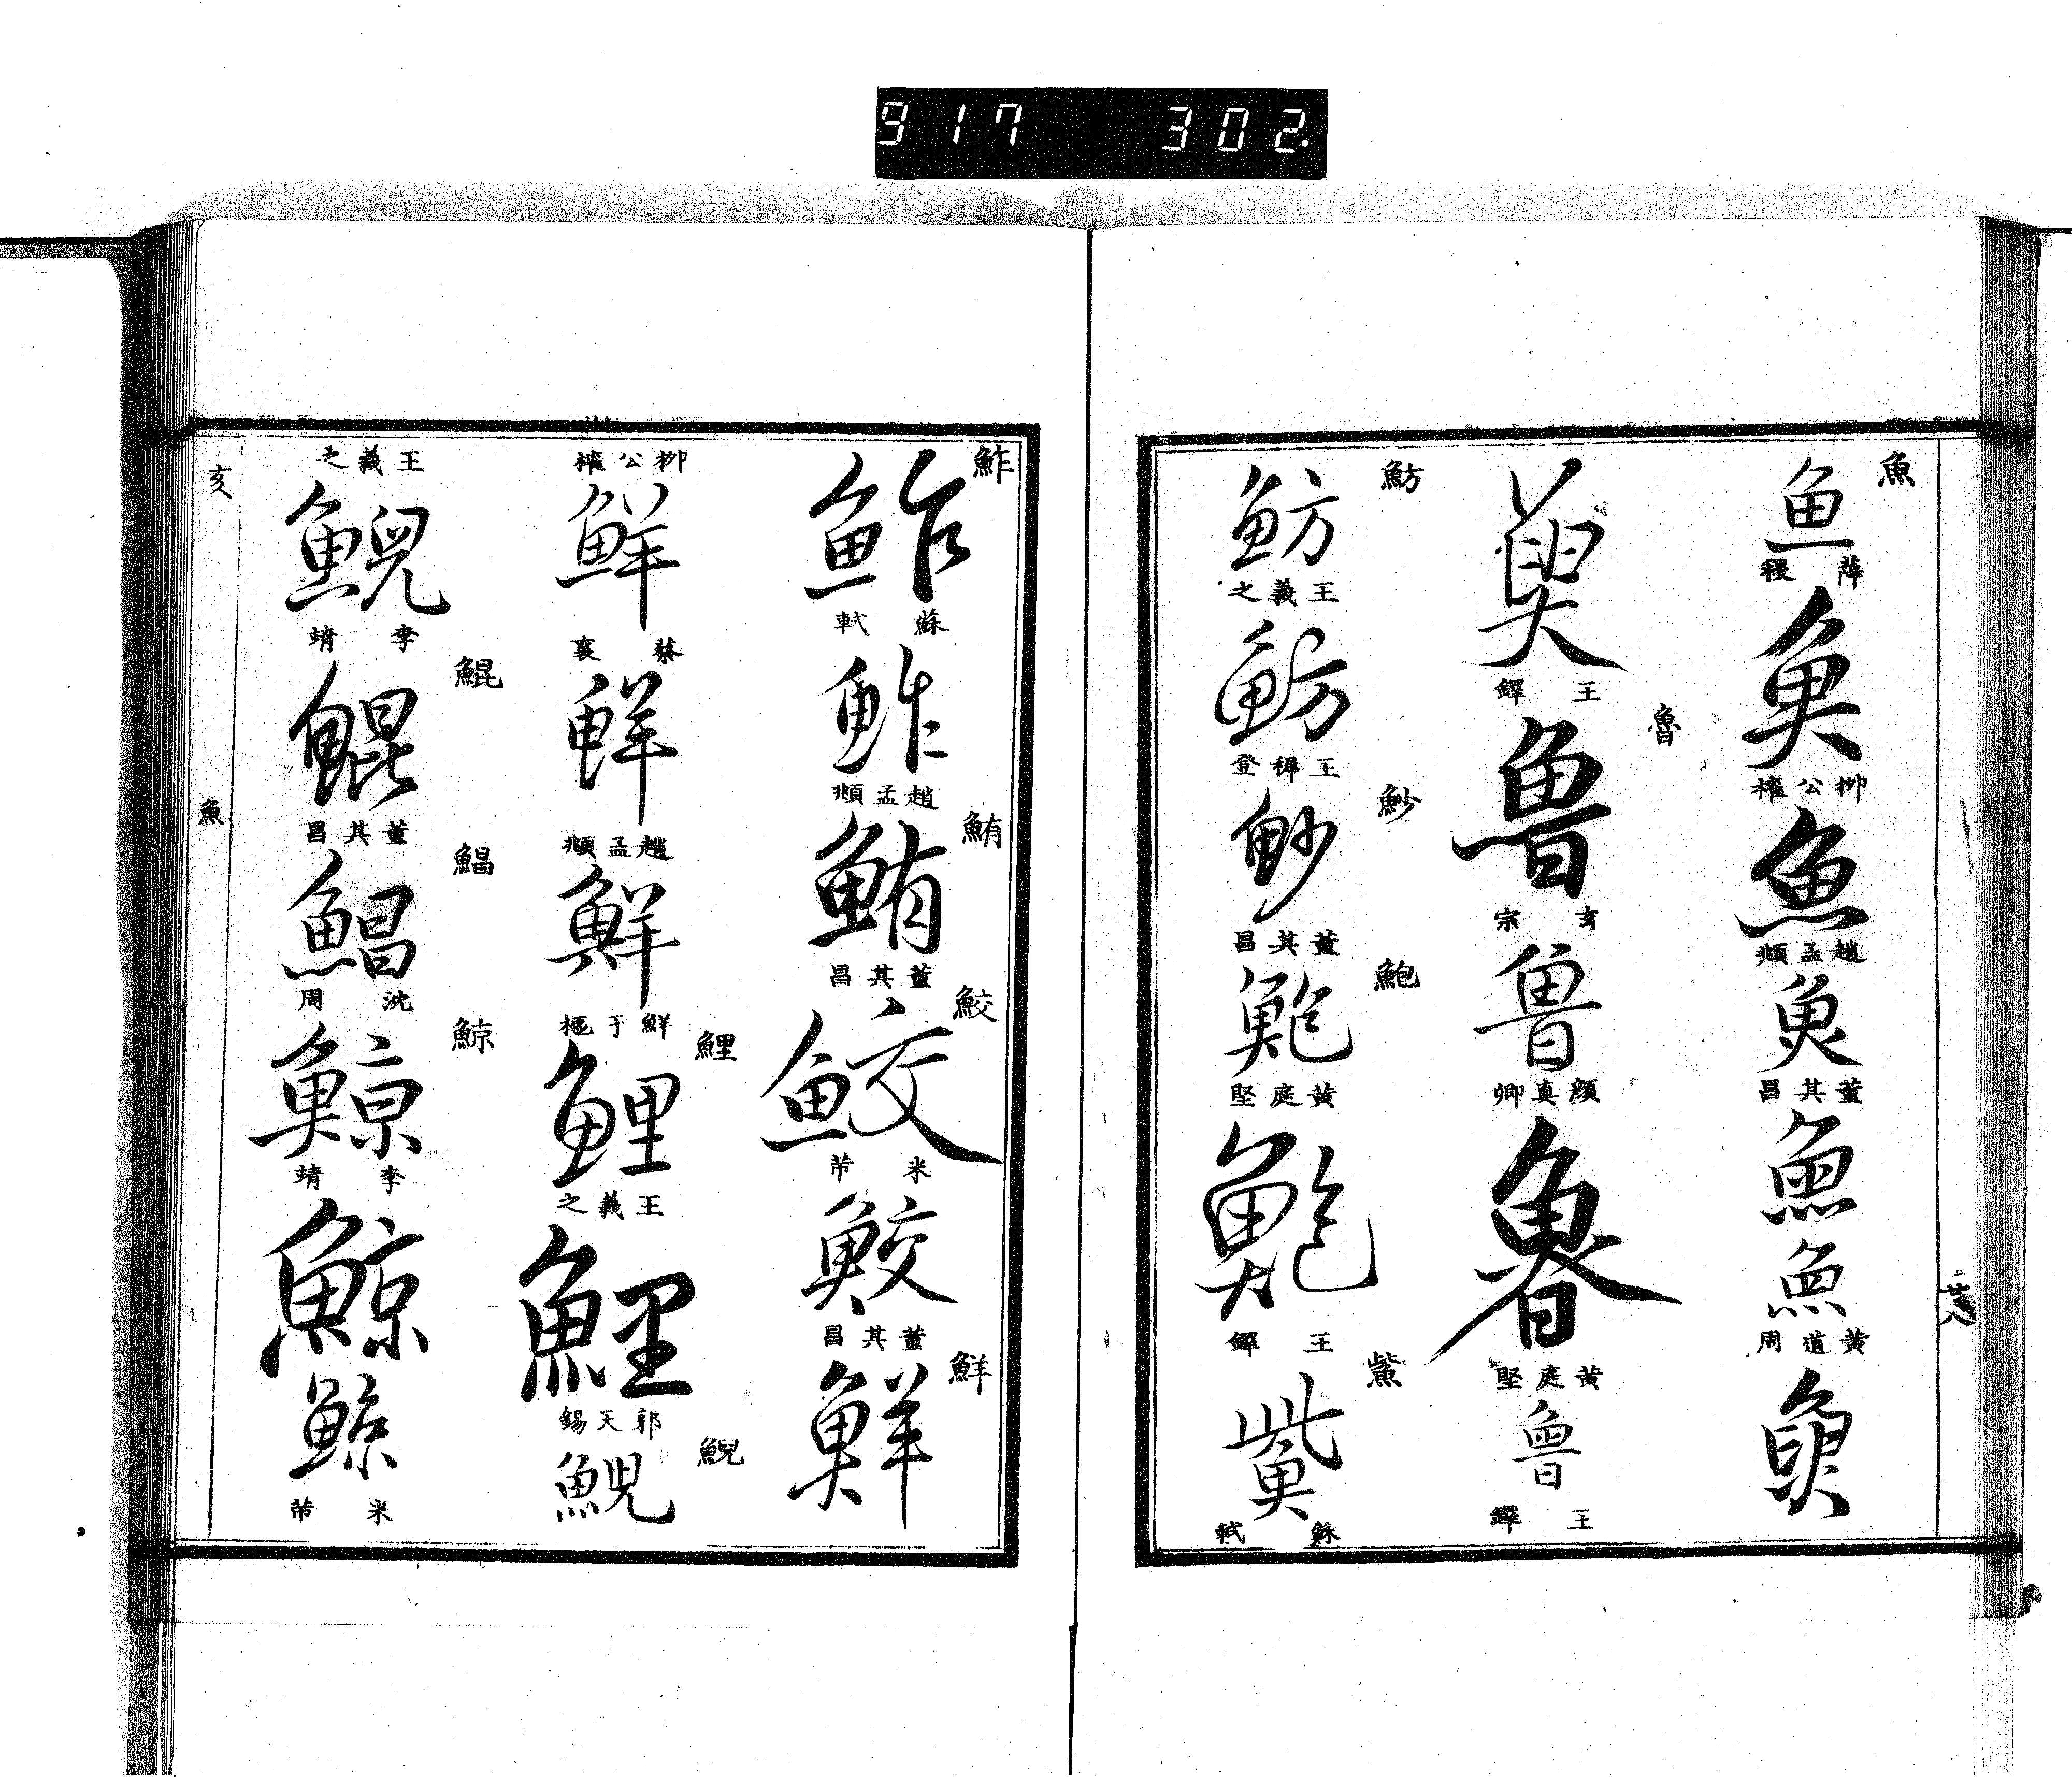 917 302
魚
魚
薛稷
魚
柳公權
魚
趙孟頫
魚
董其昌
魚
魚
黃道周
魚
魚
王鐸
魯
魯
玄宗
魯
顏真卿
魯
黃庭堅
魯
王鐸
魴
魴
王羲之
魴
王穉登
魦
魦
董其昌
鮑
鮑
黃庭堅
鮑
王鐸
鮆
鮆
蘇軾
鮓
鮓
蘇軾
鮓
趙孟頫
鮪
鮪
董其昌
鮫
鮫
米芾
鮫
董其昌
鮮
鮮
柳公權
鮮
蔡襄
鮮
趙孟頫
鮮
鮮于樞
鯉
鯉
王羲之
鯉
郭天錫
鯢
鯢
王羲之
鯢
李靖
鯤
鯤
董其昌
鯧
鯧
沈周
鯨
鯨
李靖
鯨
鯨
米芾
亥
魚